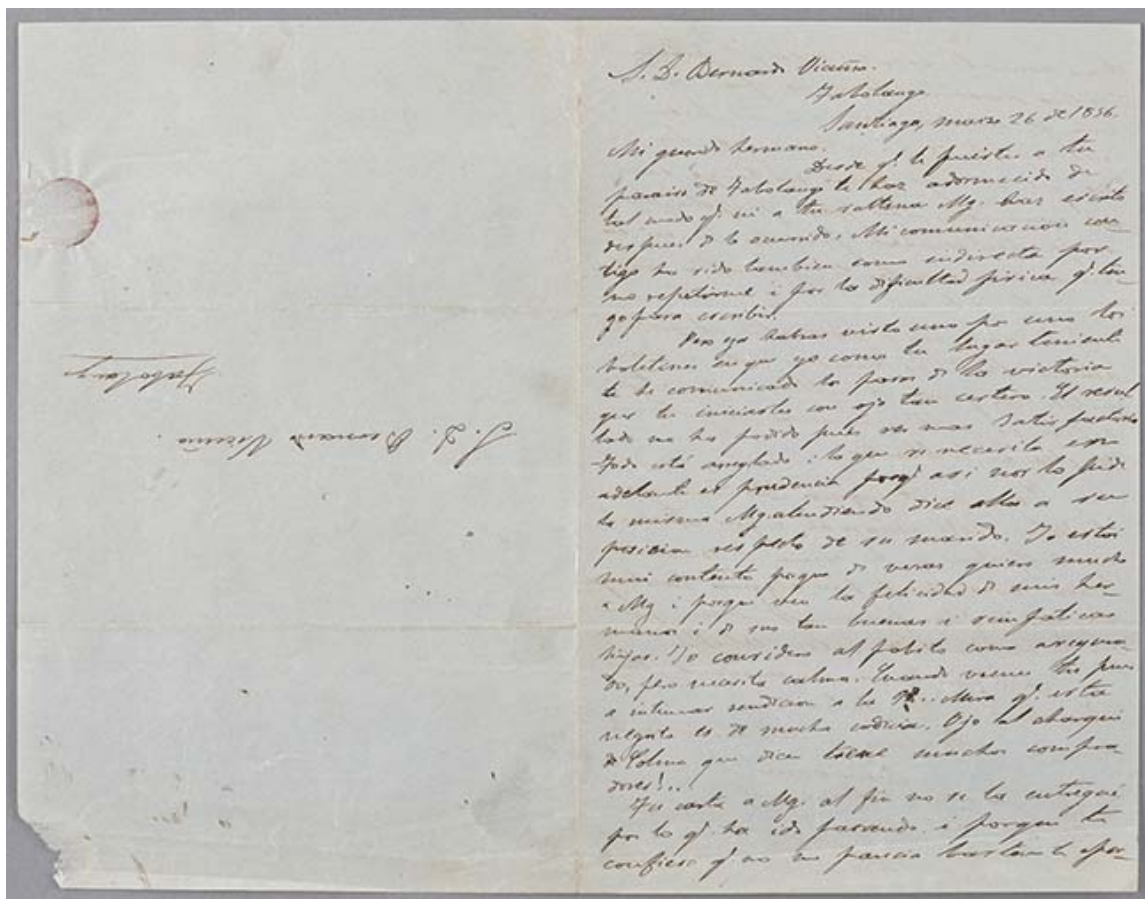 S. D. Bernardo Vicuña.
Tabolango
Santiago, marzo 26 de 1856.
Mi querido hermano.
Desde qe. te fuiste a tu
paraiso de Tabolango te haz adormecido de
tal modo qe. ni a tu Mg. haz escrito
despues de lo ocurrido. Mi comunicacion con-
tigo ha sido tambien como indirecta por
no repetirme i por la dificultad fisica qe. ten-
go para escribir.
Pero ya habras visto uno por uno los
boletines en que yo como tu lugar teniente
te he comunicado los pasos de la victoria
que tu iniciastes con ojo tan certero. El resul
tado no ha podido pues ser mas satisfactorio
Todo está arreglado i lo que se necesita en
adelante es prudencia porqe asi nos lo pide
la misma Mg. atendiendo dice ella a su
posicion respecto de su marido. Yo estoi
mui contento porque de veras quiero mucho
a Mg. i porque veo la felicidad de mis her-
manos i de sus tan buenas i simpaticas
hijas. Yo considero al pobito como
do, pero necesita calma. Cuando vienes tu pues
a intimar rendicion a la Mira qe. esta
regata es de mucha codicia. Ojo al charqui
de Colina que dicen tiene muchos compra-
dores!..
Tu carta a Mg. al fin no se la entregué
por lo qe. ha ido pasando i porque te
confieso qe. no me parecia bastante opor-
Tabolango
S. D. Bernardo Vicuña.